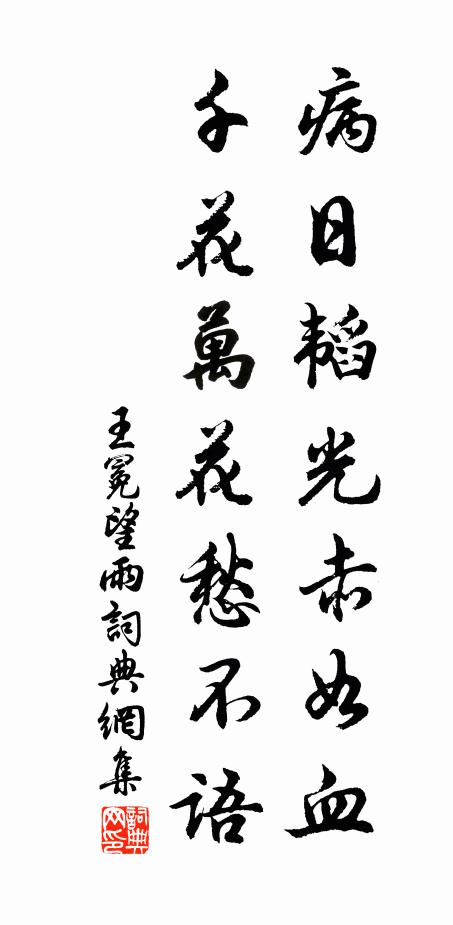 病日韜光赤如血
千花萬花愁不語
王冕望雨詞典網集
詞典网印